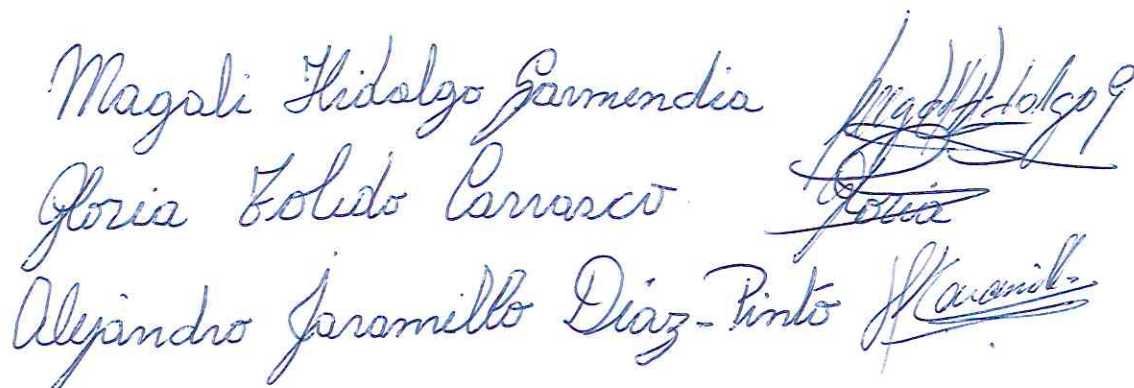 Magali Hidalgo Garmendia Magali Hidalgo G
Gloria Toledo Carrasco Gloria
Alejandro Jaramillo Díaz-Pinto AJaramillo